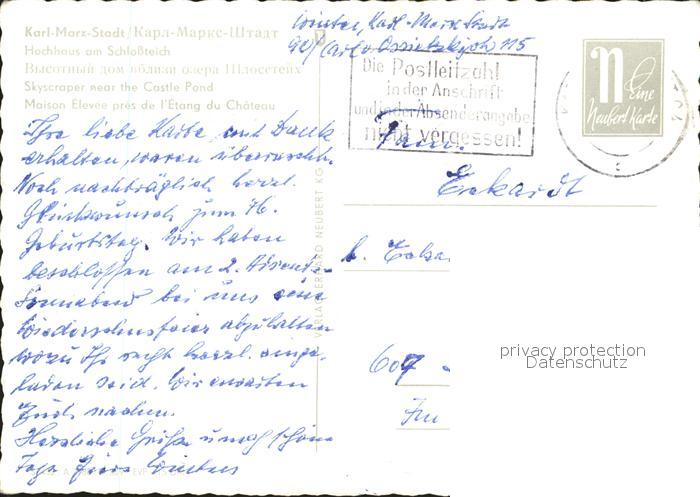 Karl-Marx-Stadt/Карл-Маркс-Штадт
Hochhaus am Schloßteich
Высотный дом вблизи озера Шлосстейх
Skyscraper near the Castle Pond
Maison Elevée près de l'Étang du Château
Winter, Karl-Marx-Stadt
90/ Carl v. Ossietzkystr. 115
Die Postleitzahl
in der Anschrift
und in der Absenderangabe
nicht vergessen!
n Eine
Neubert Karte
Fam.
Eckardt
b. Ecka
607
Im
Ihre liebe Karte mit Dank
erhalten, waren überrascht.
Noch nachträglich herzl.
Glückwunsch zum 76.
Geburtstag. Wir haben
beschlossen am 2. Advents-
Sonnabend bei uns eine
Wiedersehnsfeier abzuhalten
wozu Ihr recht herzl. einge-
laden seid. Wir erwarten
Euch
Herzliche Grüße u. noch schöne
Tage Eure Winters
VERLAG ERHARD NEUBERT KG
privacy protection
Datenschutz